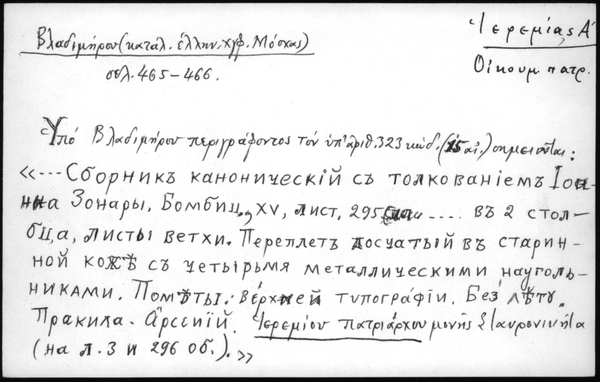 Βλαδιμήρου (κατάλ. ἑλλην. χφ. Μόσχας)
σελ. 465-466.
Ἱερεμίας Α΄
Οἰκουμ. πατρ.
Ὑπό Βλαδιμήρου περιγράφοντος τόν ὑπ' ἀριθ. 323 κώδ. (15 αἰ.) σημειοῦται:
«--- Сборникъ каноническій съ толкованіемъ Іоа-
нна Зонары. Бомбиц., XV, лист. 295 .... въ 2 стол-
бца, листы ветхи. Переплетъ досчатый въ старин-
ной кожѣ съ четырьмя металлическими науголь-
никами. Помѣты: верхней типографіи. Без лѣту.
Правила. Арсеній. Ἱερεμίου πατριάρχου μονῆς Σταυρονικήτα
(на л. 3 и 296 об.).»